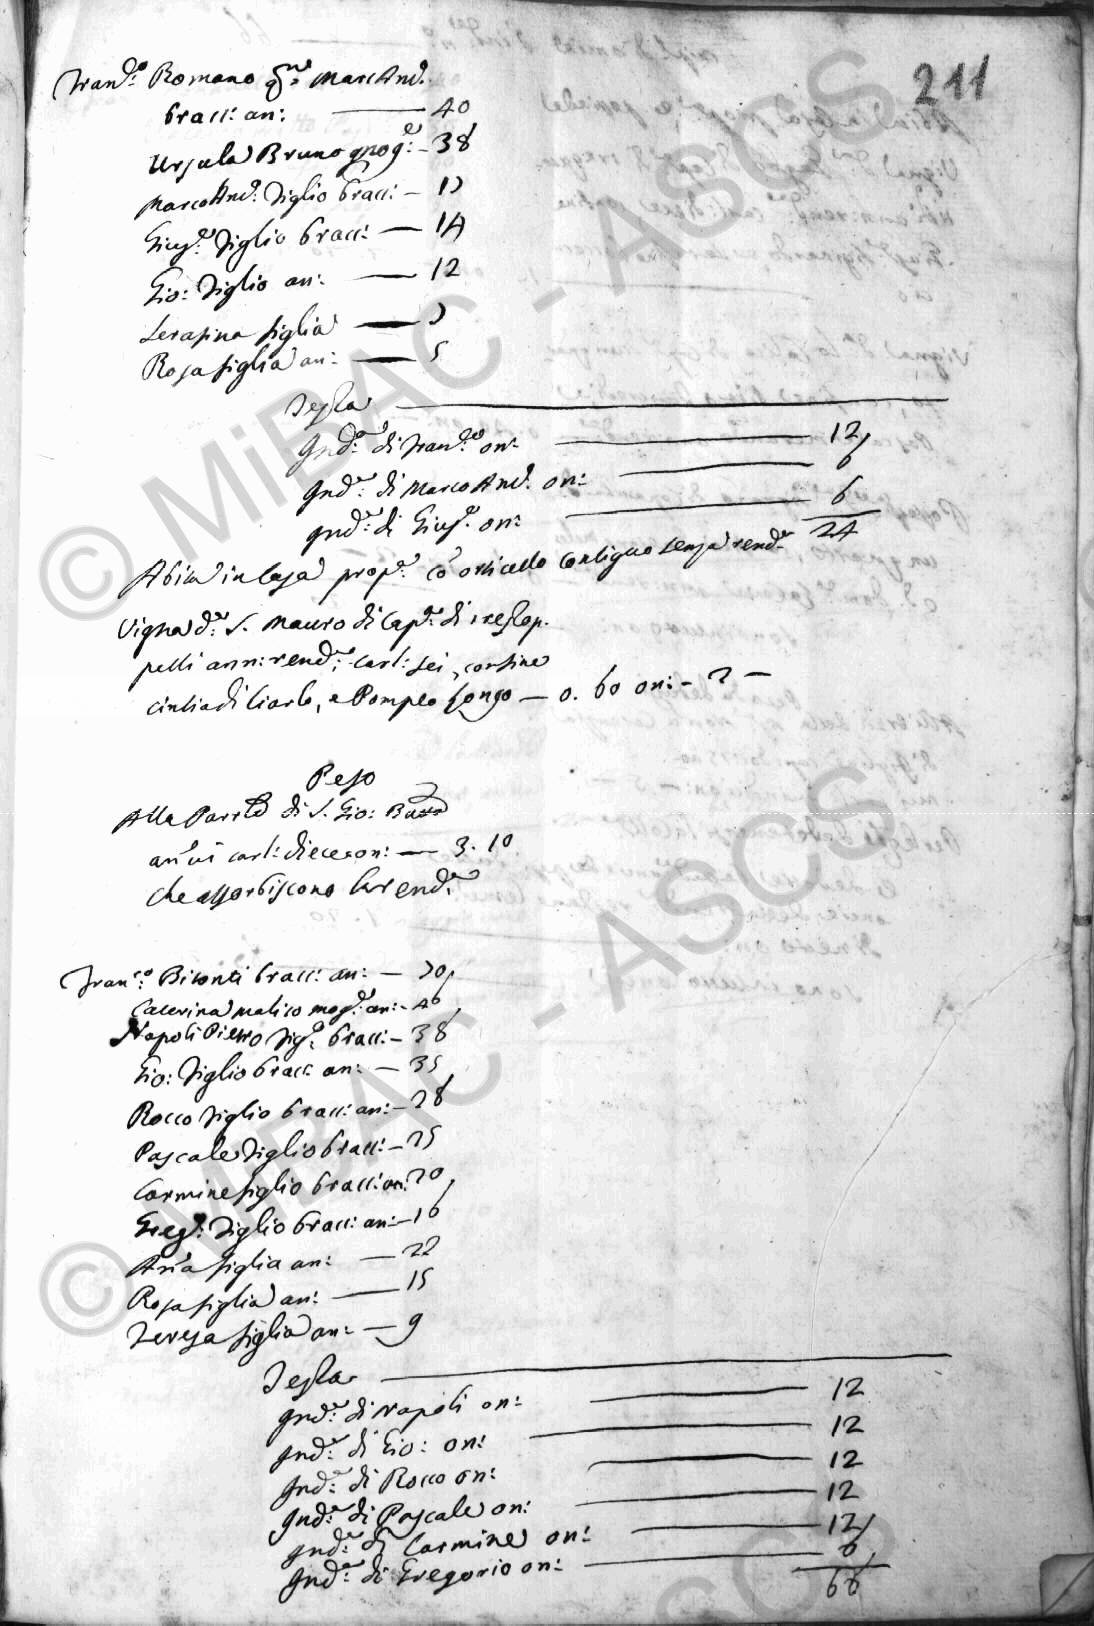 211
Fran.co Romano q.m Marc'And.a
bracc: an: — 40
Ursula Bruno mog.e — 38
Marco And.a figlio bracc: — 17
Gius.e figlio bracc: — 14
Gio: figlio an: — 12
Serafina figlia — 7
Rosa figlia an: — 5
Testa
Ind.a di Fran.co on: — 12
Ind.a di Marco And.a on: — 6
Ind.a di Gius.e on: — 6
24
Abita in casa prop.a co orticello contiguo senza rend.a
Vigna d.a S. Mauro di cap.tà di
ann: rend.a carl: sei, confine
di Carlo, e Pompeo Longo — o. 60 on: — 2 —
Peso
Alla Parr.le di S. Gio: Batta
annui carl: diece on: — 3. 10
che assorbiscono la rend.a
Fran.co Bisonti bracc: an: — 70
Caterina Malico mog.e an: — 46
Napoli Pietro fig.o bracc: — 38
Gio: figlio bracc: an: — 35
Rocco figlio bracc: an: — 28
Pascale figlio bracc: — 25
Carmine figlio bracc: an: 20
Greg.o figlio bracc: an: — 16
An'a figlia an: — 22
Rosa figlia an: — 15
Teresa figlia an: — 9
Testa
Ind.a di Napoli on: — 12
Ind.a di Gio: on: — 12
Ind.a di Rocco on: — 12
Ind.a di Pascale on: — 12
Ind.a di Carmine on: — 12
Ind.a di Gregorio on: — 6
66
© MiBAC - ASCS
© MiBAC - ASCS